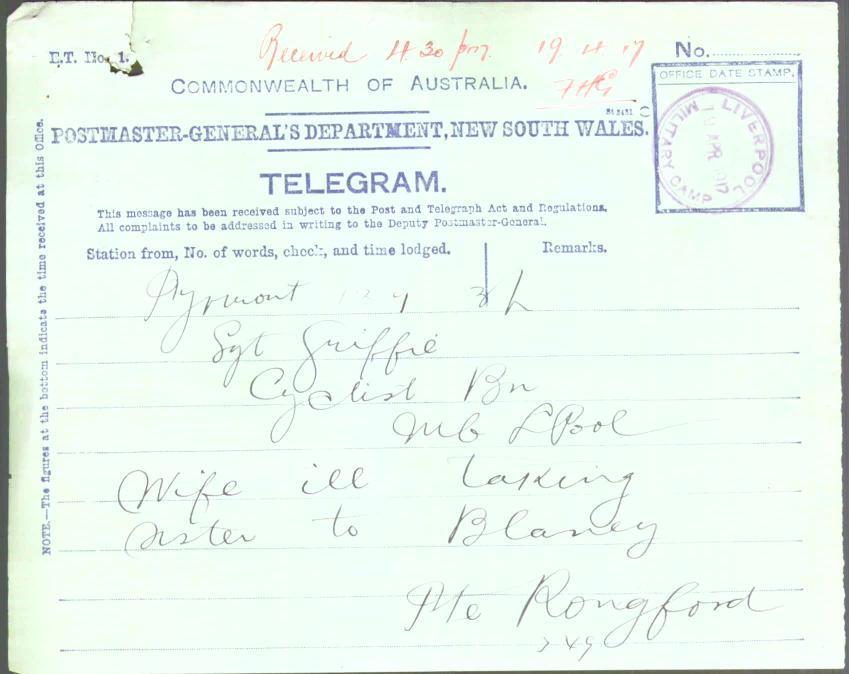 Received 4 30 pm. 19 4 17
E.T. No. 1.
No.
COMMONWEALTH OF AUSTRALIA.
FHG
OFFICE DATE STAMP.
LIVERPOOL
19 APR 1917
MILITARY CAMP
POSTMASTER-GENERAL'S DEPARTMENT, NEW SOUTH WALES.
TELEGRAM.
This message has been received subject to the Post and Telegraph Act and Regulations.
All complaints to be addressed in writing to the Deputy Postmaster-General.
Station from, No. of words, check, and time lodged.
Remarks.
NOTE.—The figures at the bottom indicate the time received at this Office.
Pyrmont
Sgt Griffie
Cyclist Bn
LPool
Wife ill taking
sister to Blaney
Pte Rongford